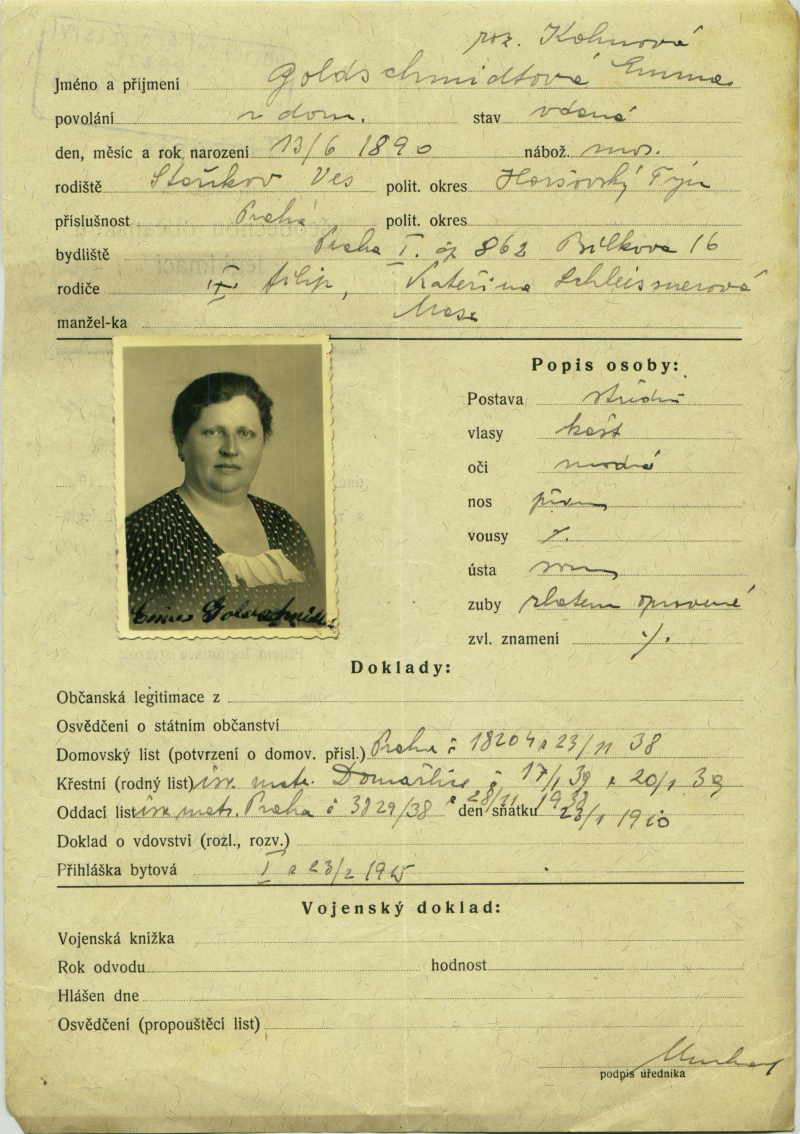 roz. Kohnová
Jméno a přijmení Goldschmidtová Emma
povolání v dom. stav vdaná
den, měsíc a rok narození 13/6 1890 nábož. mos.
rodiště Staňkov Ves polit. okres Horšovský Týn
příslušnost Praha polit. okres
bydliště Praha I. čp 862 Bílkova 16
rodiče Filip, Kateřina Schleissnerová
manžel-ka Max
Popis osoby:
Postava střední
vlasy kašt
oči modré
nos
vousy
ústa
zuby zlatem opravené
zvl. znamení ./.
Emma Goldschmidt
Doklady:
Občanská legitimace z
Osvědčení o státním občanství
Domovský list (potvrzení o domov. přísl.) Praha č 18204 z 23/11 38
Křestní (rodný list) isr. matr. Domažlice č 17/39 z 20/1 39
Oddací list isr. matr. Praha č 3829/38 z 28/11 1938 den sňatku 23/1 1910
Doklad o vdovství (rozl., rozv.)
Přihláška bytová I z 23/2 1915
Vojenský doklad:
Vojenská knížka
Rok odvodu hodnost
Hlášen dne
Osvědčení (propouštěcí list)
podpis úředníka